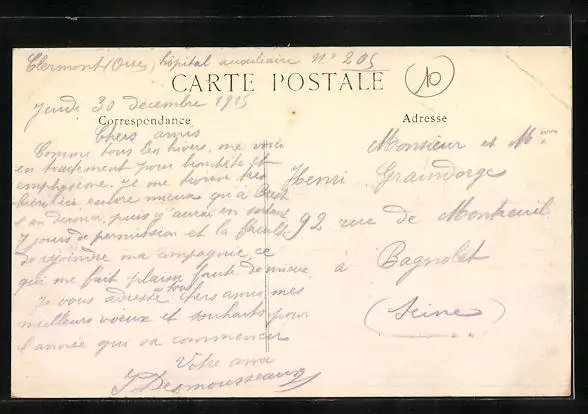 Clermont (Oise) hôpital auxiliaire N° 205
CARTE POSTALE
10
Jeudi 30 décembre 1915
Correspondance
Adresse
Chers amis
Comme tous les hivers, me voici
en traitement pour bronchite et
emphysème. Je me trouve très
bien ici, encore mieux qu'à Brest
l'an dernier, puis j'aurai en sortant
7 jours de permission et la faculté
de rejoindre ma compagnie, ce
qui me fait plaisir faute de mieux.
Je vous adresse à tous chers amis, mes
meilleurs voeux et souhaits pour
l'année qui va commencer
Votre ami
Desmousseaux
Monsieur et Mme
Henri Graindorge
92 rue de Montreuil
à Bagnolet
(Seine)